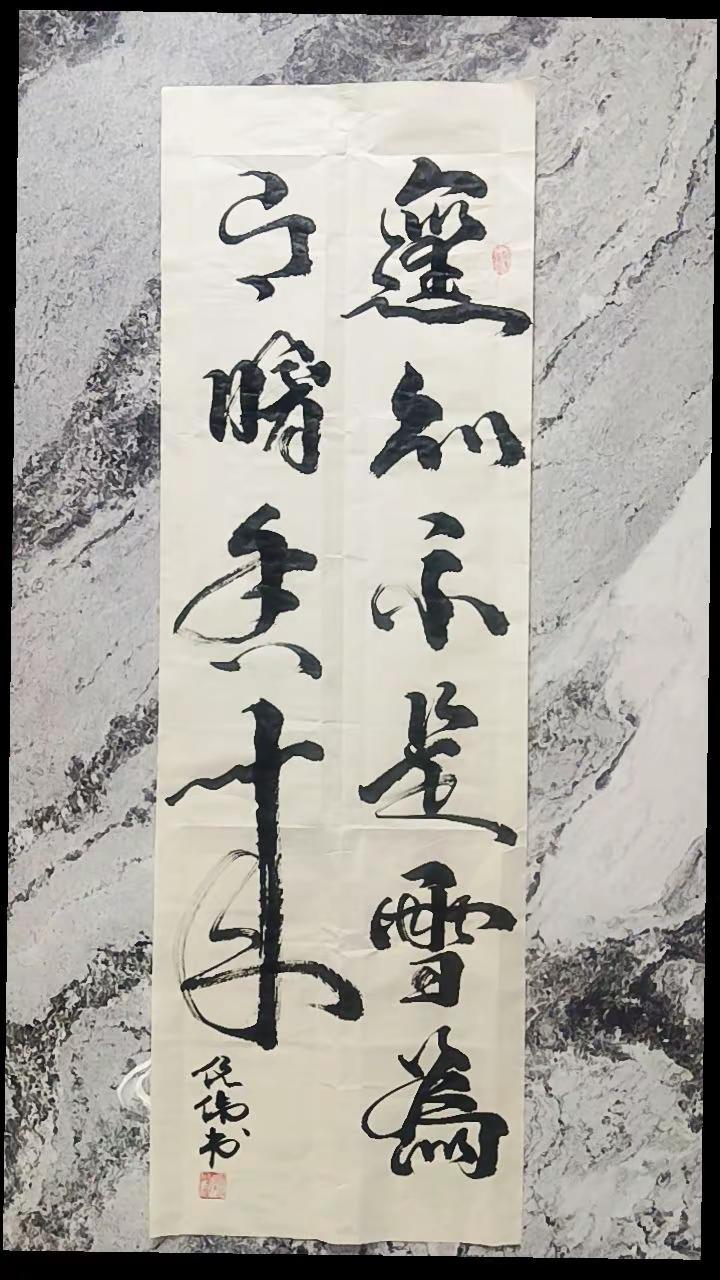 遙知不是雪為
有暗香来
倪伟书